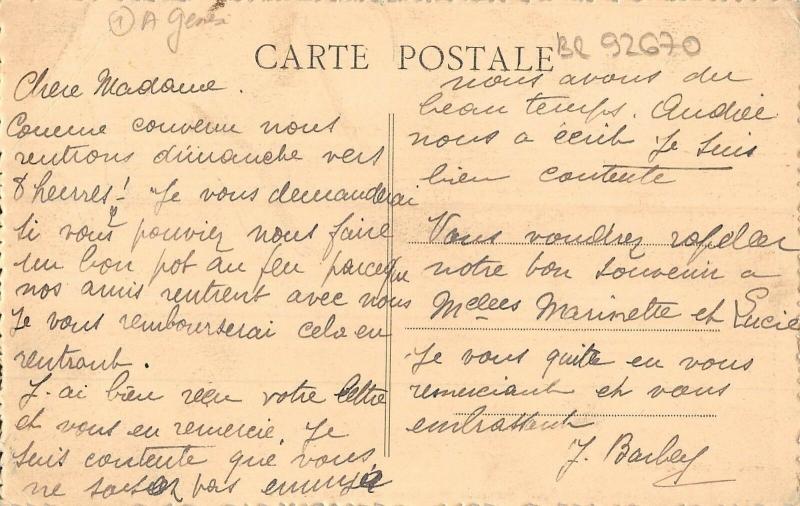 1 A Genes
CARTE POSTALE
BR 92670
Chere Madame.
Comme convenu nous
rentrons dimanche vers
8 heures! Je vous demanderai
si vous y pouviez nous faire
un bon pot au feu parceque
nos amis rentrent avec nous
Je vous rembourserai cela en
rentrant.
J-ai bien reçu votre lettre
et vous en remercie. Je
suis contente que vous
ne soiez pas ennuyé
nous avons du
beau temps. Andrée
nous a écrit Je suis
bien contente
Vous voudrez rappeler
notre bon souvenir a
Melles Marinette et Lucie
Je vous quitte en vous
remerciant et vous
embrassant
J. Barbey